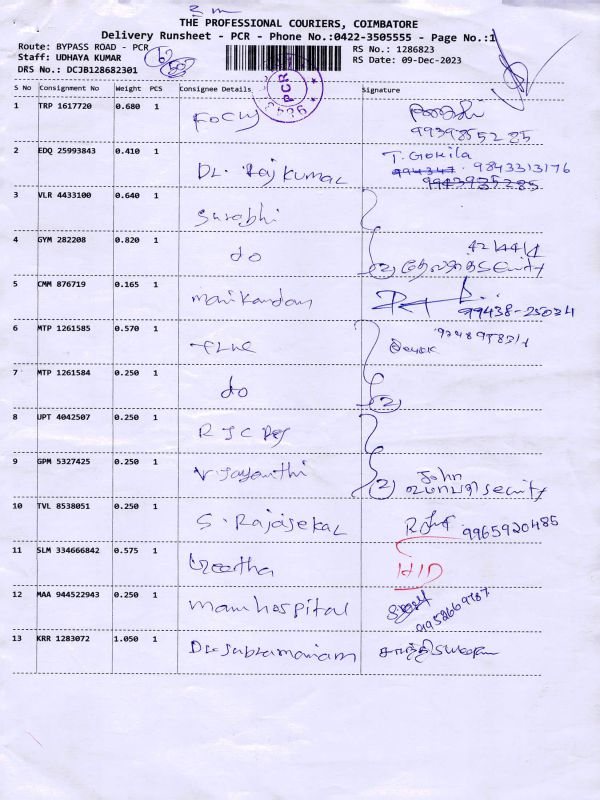 THE PROFESSIONAL COURIERS, COIMBATORE
Delivery Runsheet - PCR - Phone No.:0422-3505555 - Page No.:1
Route: BYPASS ROAD - PCR
Staff: UDHAYA KUMAR
DRS No.: DCJB128682301
RS No.: 1286823
RS Date: 09-Dec-2023
PCR
S No Consignment No Weight PCS Consignee Details Signature
1 TRP 1617720 0.680 1
9939855285
2 EDQ 25993843 0.410 1 Dr. Rajkumar T. Gokila 9843313176
3 VLR 4433100 0.640 1 Surabhi
4 GYM 282208 0.820 1 do (2)
5 CMM 876719 0.165 1 Manikandan 99438-25034
6 MTP 1261585 0.570 1
7 MTP 1261584 0.250 1 do (2)
8 UPT 4042507 0.250 1
9 GPM 5327425 0.250 1 V. Jayanthi (2) John
10 TVL 8538051 0.250 1 S. Rajasekar 9965920485
11 SLM 334666842 0.575 1 H/D
12 MAA 944522943 0.250 1 mam hospital
13 KRR 1283072 1.050 1 Dr. Subramaniam